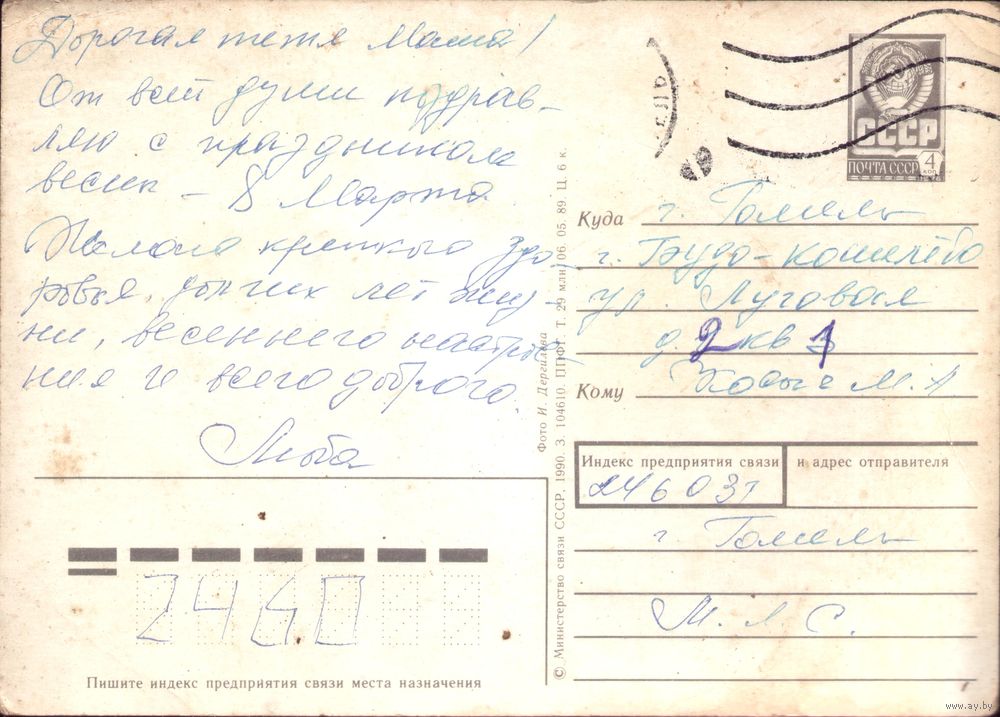 Дорогая тетя Маша!
От всей души поздрав-
ляю с праздником
весны - 8 Марта.
Желаю крепкого здо-
ровья, долгих лет жиз-
ни, весеннего настрое-
ния и всего доброго.
Люба
СССР
ПОЧТА СССР 4 КОП
Куда г. Гомель
г. Буда-Кошелёво
ул. Луговая
д. 2 кв 1
Кому М. А
Индекс предприятия связи и адрес отправителя
246031
г Гомель
М. Л. С.
2460
Пишите индекс предприятия связи места назначения
© Министерство связи СССР, 1990. З. 104610. ППФГ. Т. 29 млн. 06. 05. 89. Ц. 6 к.
Фото И. Дергилёва
www.ay.by